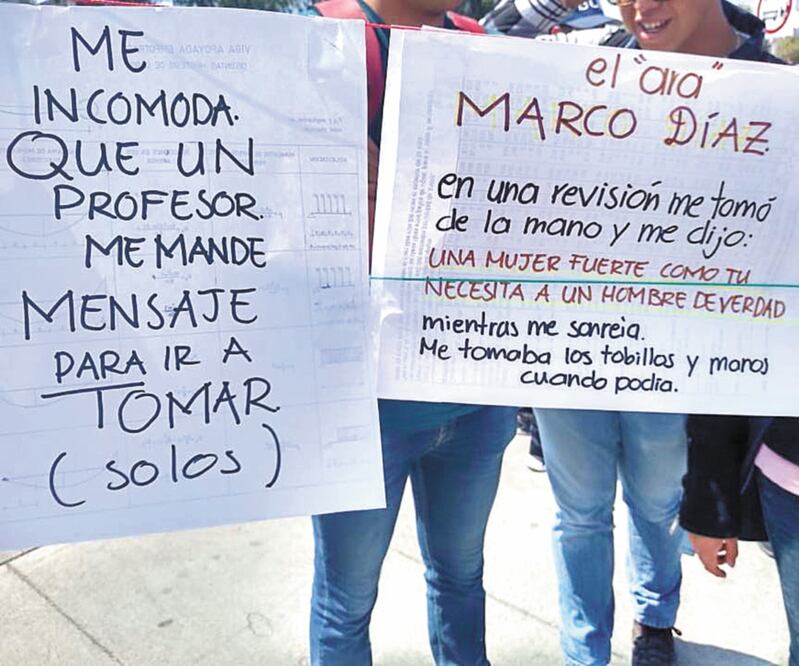 ME
INCOMODA.
QUE UN
PROFESOR.
ME MANDE
MENSAJE
PARA IR A
TOMAR
(SOLOS)
el "ara"
MARCO DÍAZ.
en una revisión me tomó
de la mano y me dijo:
UNA MUJER FUERTE COMO TU
NECESITA A UN HOMBRE DE VERDAD
mientras me sonreia.
Me tomaba los tobillos y manos
cuando podia.